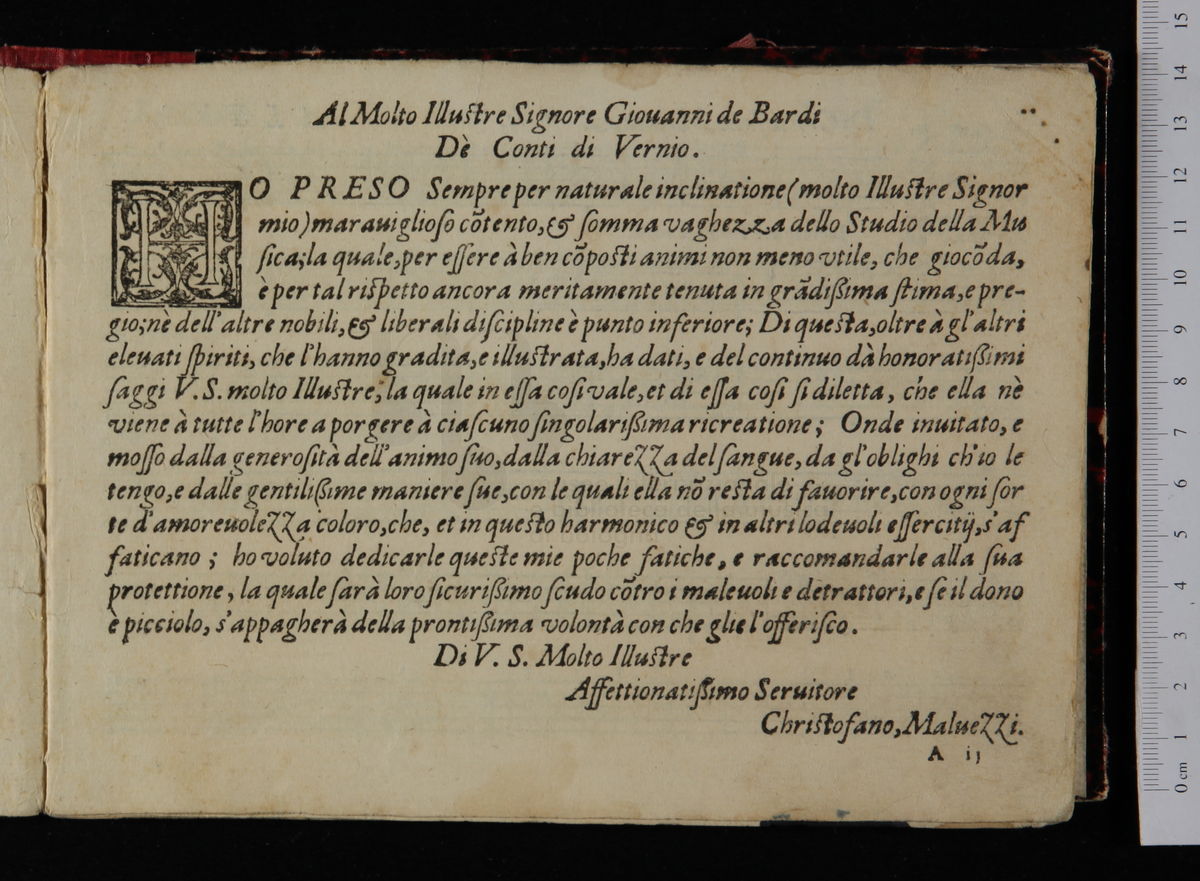 Al Molto Illustre Signore Giouanni de Bardi
Dè Conti di Vernio.
HO PRESO Sempre per naturale inclinatione (molto Illustre Signor
mio) marauiglioso cõtento, & somma vaghezza dello Studio della Mu
sica; la quale, per essere à ben cõposti animi non meno vtile, che giocõda,
è per tal rispetto ancora meritamente tenuta in grãdißima stima, e pre-
gio; nè dell'altre nobili, & liberali discipline è punto inferiore; Di questa, oltre à gl'altri
eleuati spiriti, che l'hanno gradita, e illustrata, ha dati, e del continuo dà honoratißimi
saggi V. S. molto Illustre, la quale in essa cosi vale, et di essa cosi si diletta, che ella nè
viene à tutte l'hore a porgere à ciascuno singolarißima ricreatione; Onde inuitato, e
mosso dalla generosità dell'animo suo, dalla chiarezza del sangue, da gl'oblighi ch'io le
tengo, e dalle gentilißime maniere sue, con le quali ella nõ resta di fauorire, con ogni sor
te d'amoreuolezza coloro, che, et in questo harmonico & in altri lodeuoli essercitij, s'af
faticano; ho voluto dedicarle queste mie poche fatiche, e raccomandarle alla sua
protettione, la quale sarà loro sicurißimo scudo cõtro i maleuoli e detrattori, e se il dono
è picciolo, s'appagherà della prontißima volontà con che glie l'offerisco.
Di V. S. Molto Illustre
Affettionatißimo Seruitore
Christofano, Maluezzi.
A ij
0 cm 1 2 3 4 5 6 7 8 9 10 11 12 13 14 15